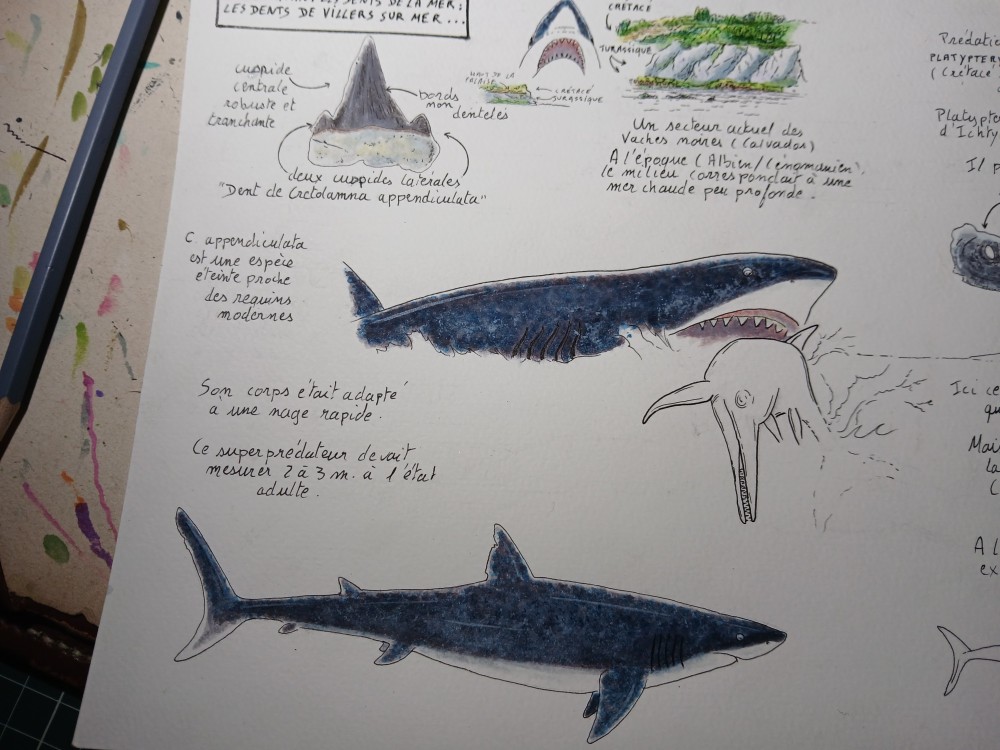 LES DENTS DE LA MER :
LES DENTS DE VILLERS SUR MER ...
CRÉTACÉ
JURASSIQUE
HAUT DE LA
FALAISE
CRÉTACÉ
JURASSIQUE
cuspide
centrale
robuste et
tranchante
bords
non
dentelés
deux cuspides latérales
"Dent de Cretolamna appendiculata"
Un secteur actuel des
Vaches noires (Calvados)
A l'époque (Albien/Cénomanien)
le milieu correspondait à une
mer chaude peu profonde.
C. appendiculata
est une espèce
éteinte proche
des requins
modernes
Son corps était adapté
à une nage rapide.
Ce superprédateur devait
mesurer 2 à 3 m. à l'état
adulte.
Prédatio
PLATYPTER
(Crétacé
Platypte
d'Ichty
Il p
Ici ce
qu
Mais
la
(
A l
ex